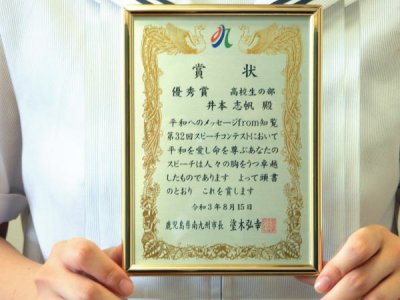 賞状
優秀賞 高校生の部
井本 志帆 殿
平和へのメッセージfrom知覧
第32回スピーチコンテストにおいて
平和を愛し命を尊ぶあなたの
スピーチは人々の胸をうつ卓越
したものであります よって頭書
のとおり これを賞します
令和3年8月15日
鹿児島県南九州市長 塗木弘幸